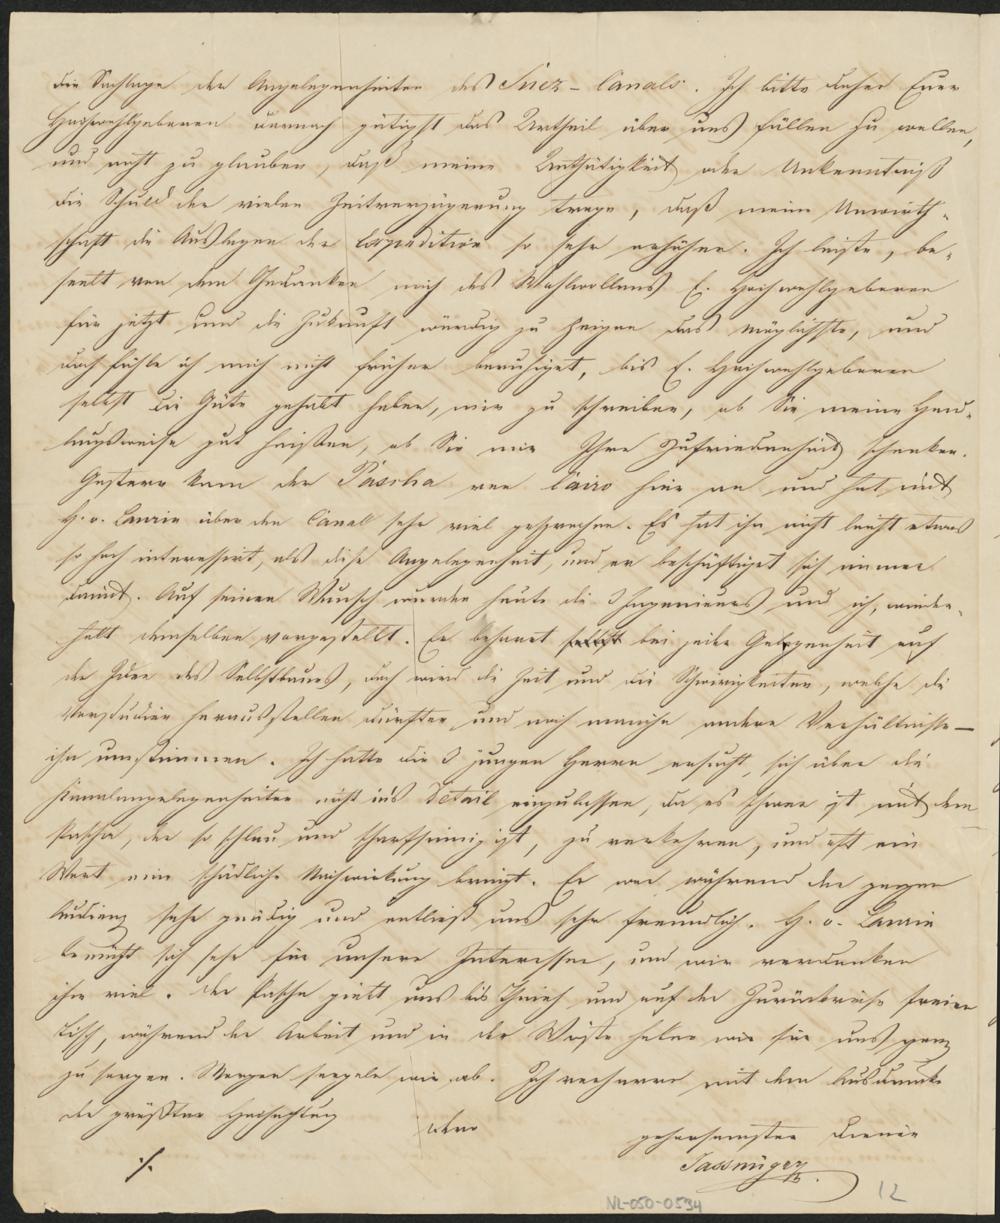 die Sachlage der Angelegenheiten des Suez-Canals. Ich bitte daher Euer
Hochwohlgeboren darnach gütigst das Urtheil über uns fällen zu wollen,
und nicht zu glauben, daß meine Unthätigkeit oder Unkenntniß
die Schuld der vielen Zeitverzögerung trage, daß meine Unwirth-
schaft die Auslagen der Expedition so sehr erhöhen. Ich leiste, be-
seelt von dem Gedanken mich des Wohlwollens E. Hochwohlgeboren
für jetzt und die Zukunft würdig zu zeigen das möglichste, und
doch fühle ich mich nicht früher beruhiget, bis E. Hochwohlgeboren
selbst die Güte gehabt haben, mir zu schreiben, ob Sie meine Hand-
lungsweise gut heißen, ob Sie mir Ihre Zufriedenheit schenken.
Gestern kam der Pascha von Cairo hier an und hat mit
H. v. Laurin über den Canal sehr viel gesprochen. Es hat ihn nicht leicht etwas
so hoch interessirt, als diese Angelegenheit, und er beschäftiget sich immer
damit. Auf seinen Wunsch wurden heute die 3 Ingenieurs und ich, wieder-
holt demselben vorgestellt. Er beharret bei jeder Gelegenheit auf
der Idee des Selbstbaues, doch wird die Zeit und die Schwierigkeiten, welche die
Vorstudien herausstellen dürften und noch manche andere Verhältnisse –
ihn umstimmen. Ich hatte die 3 jungen Herrn ersucht, sich über die
Kanalangelegenheiten nicht ins Detail einzulassen, da es schwer ist mit dem
Pascha, der so schlau und scharfsinnig ist, zu verkehren, und oft ein
Wort eine schädliche Nachwirkung bringt. Er war während der ganzen
Audienz sehr gnädig und entließ uns sehr freundlich. H. v. Laurin
bemüht sich sehr für unsere Interessen, und wir verdanken
ihm viel. Der Pascha giebt uns bis Thineh und auf der Zurückreise freien
Tisch, während der Arbeit und in der Wüste haben wir für uns ganz
zu sorgen. Morgen seegeln wir ab. Ich verharre mit dem Ausdrucke
der größten Hochachtung
Dero
gehorsamster Diener
./.
NL-050-0534
12